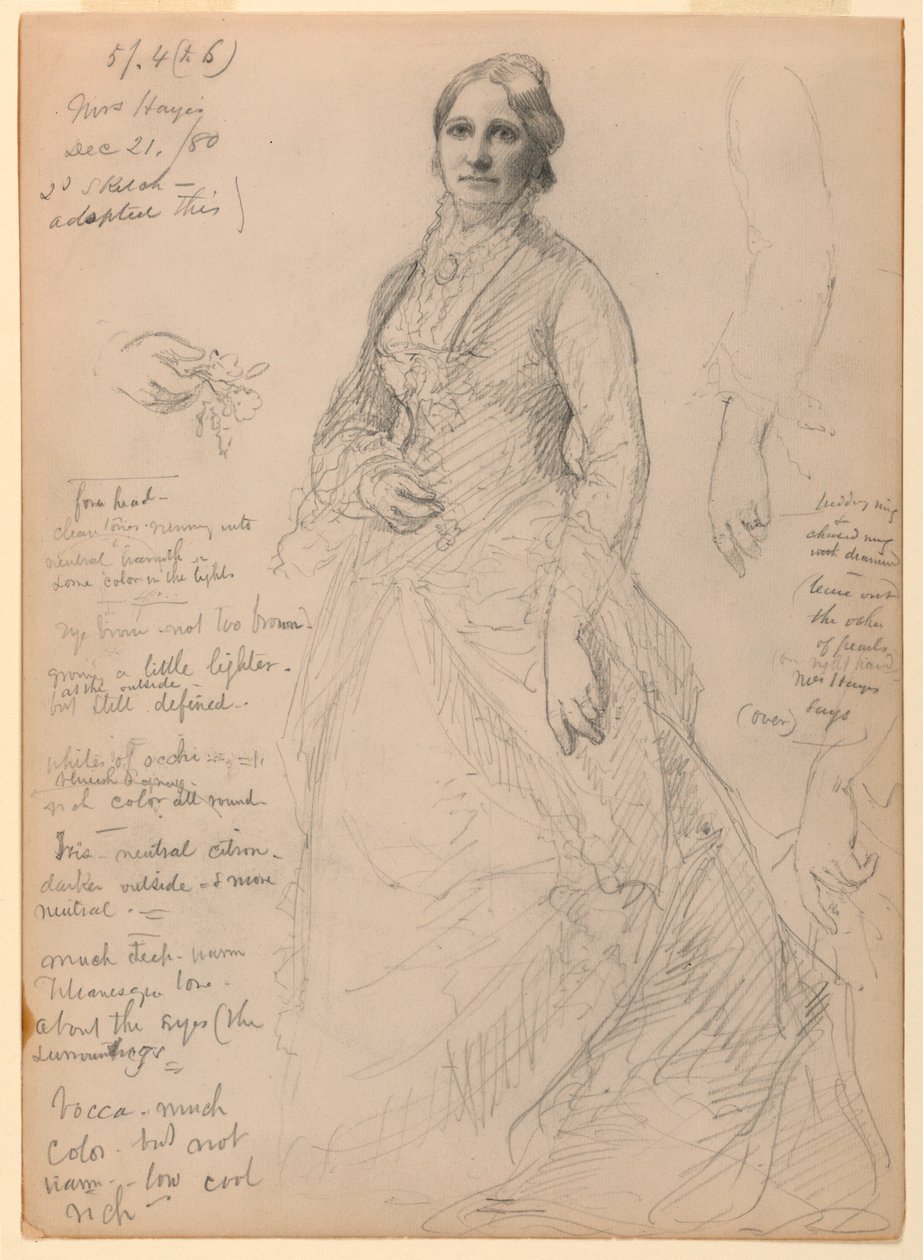 5/. 4 (& 6)
Mrs Hayes
Dec 21. /80
2d Sketch —
adopted this )
fore head —
clean tones - running into
neutral warmth -
some color in the lights
eye brow - not too brown -
growing a little lighter -
at the outside -
but still defined -
whites of occhi
rich color all round -
Iris - neutral citron -
darker outside - & more
neutral . =
much deep - warm
Titianesque tone -
about the eyes (the
surroundings =
bocca - much
color - but not
warm - - low cool
rich -
wedding ring
&
chased ring
(leave out
the other
of pearls
(on right hand
Mrs Hayes
says
(over)